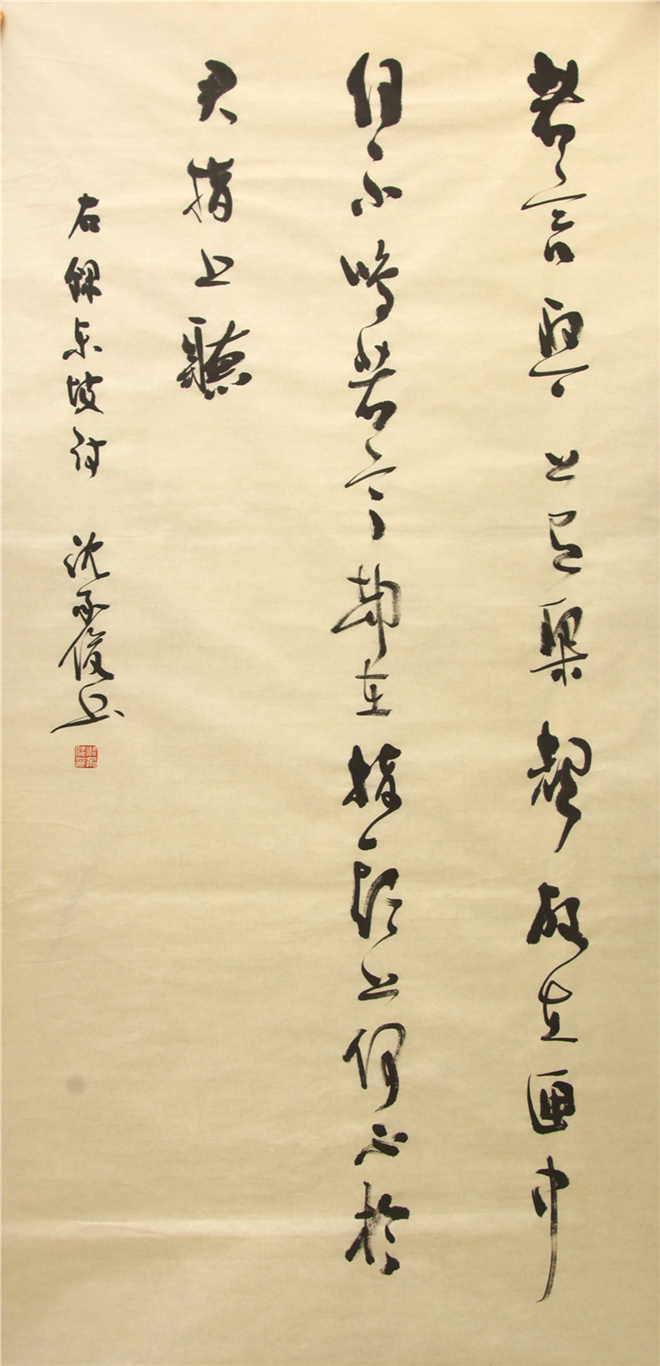 若言琴上有琴聲放在匣中
何不鳴若言聲在指頭上何不於
君指上聽
右錄東坡詩 沈俊书